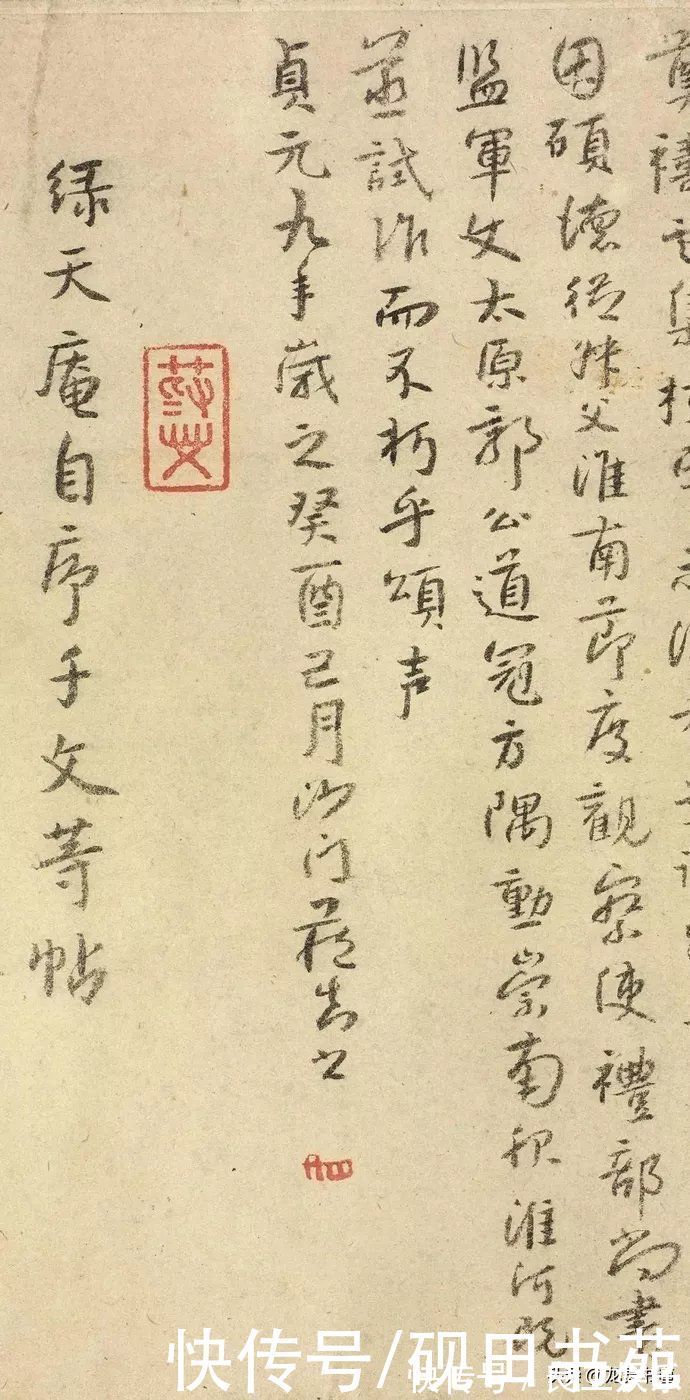 禧云集
因碩德從叔父淮南節度觀察使禮部尚書
監軍使太原郭公道冠方隅勳崇南服淮沂既
蒸試作而不朽乎頌声
貞元九年歲之癸酉己月沙门藏真书
绿天庵自序千文等帖
快传号/砚田书苑
快传号 /